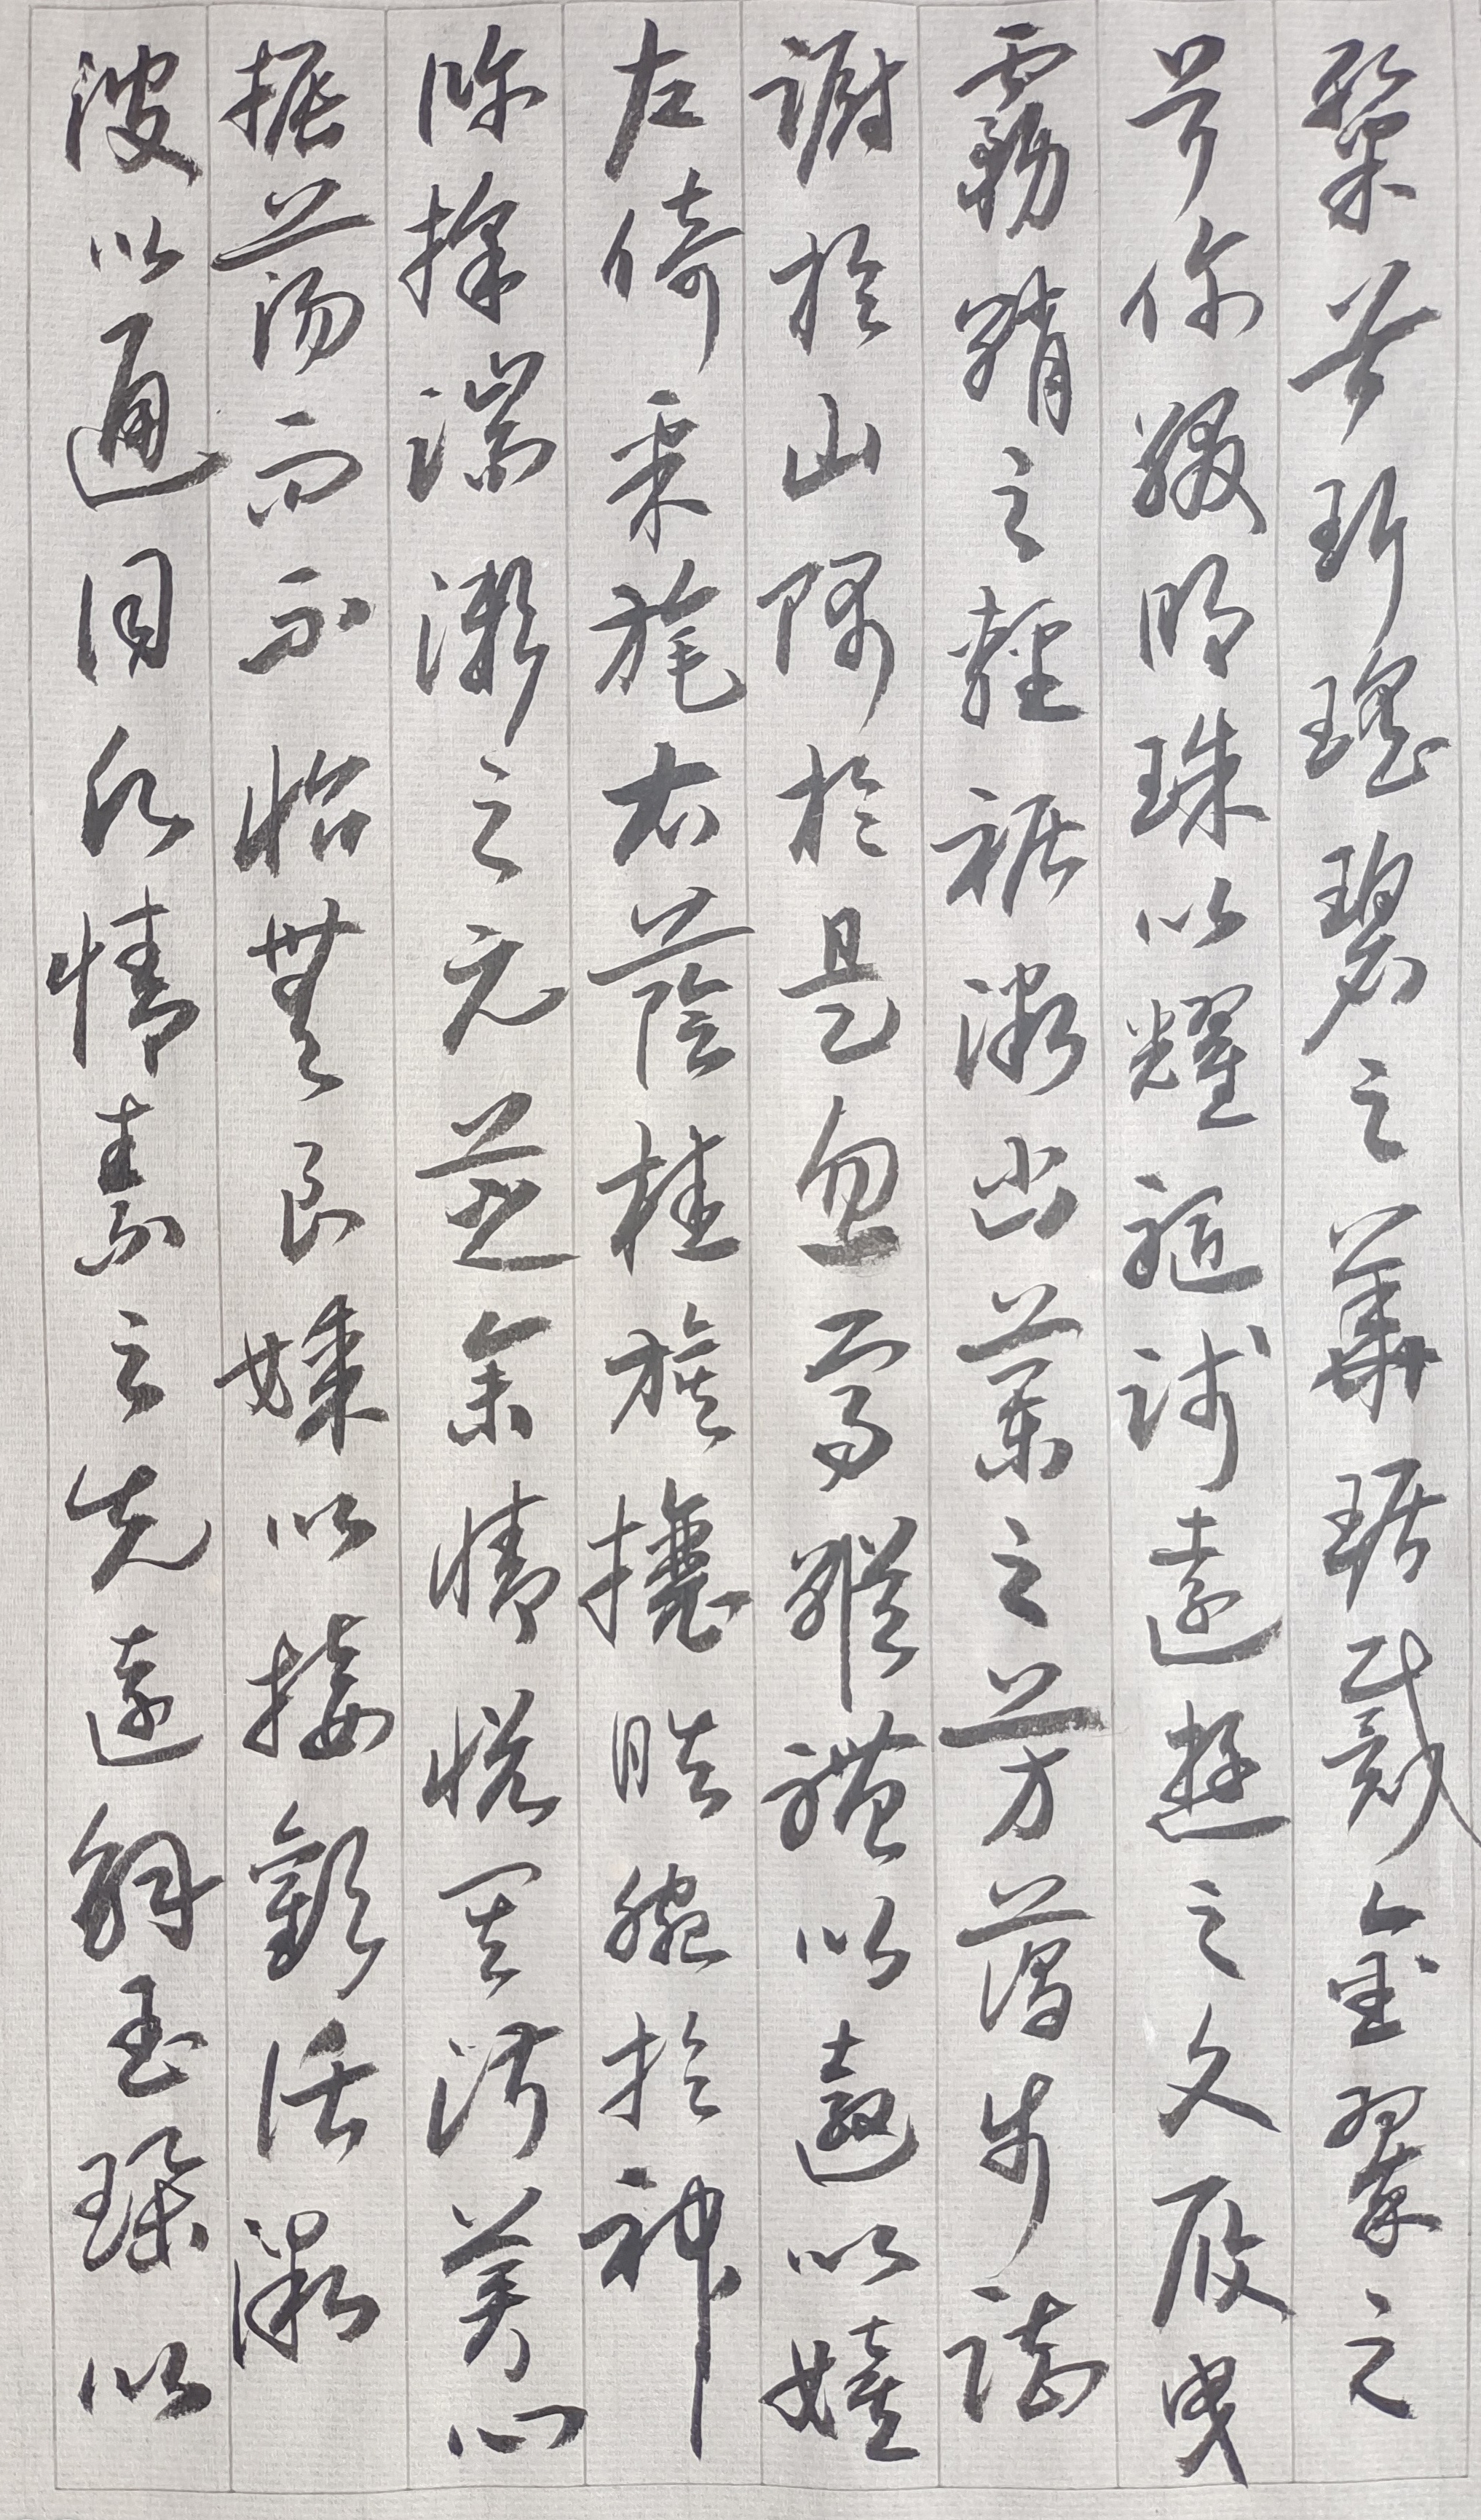 粲兮珥瑤碧之華琚戴金翠之
首飾綴明珠以耀軀踐遠遊之文履曳
霧綃之輕裾微幽蘭之芳藹步踟
躕於山隅於是忽焉縱體以遨以嬉
左倚采旄右蔭桂旗攘皓腕於神
滸採湍瀨之元芝余情悅其淑美心
振蕩而不怡無良媒以接歡託微
波以通情素之先達解玉珮以